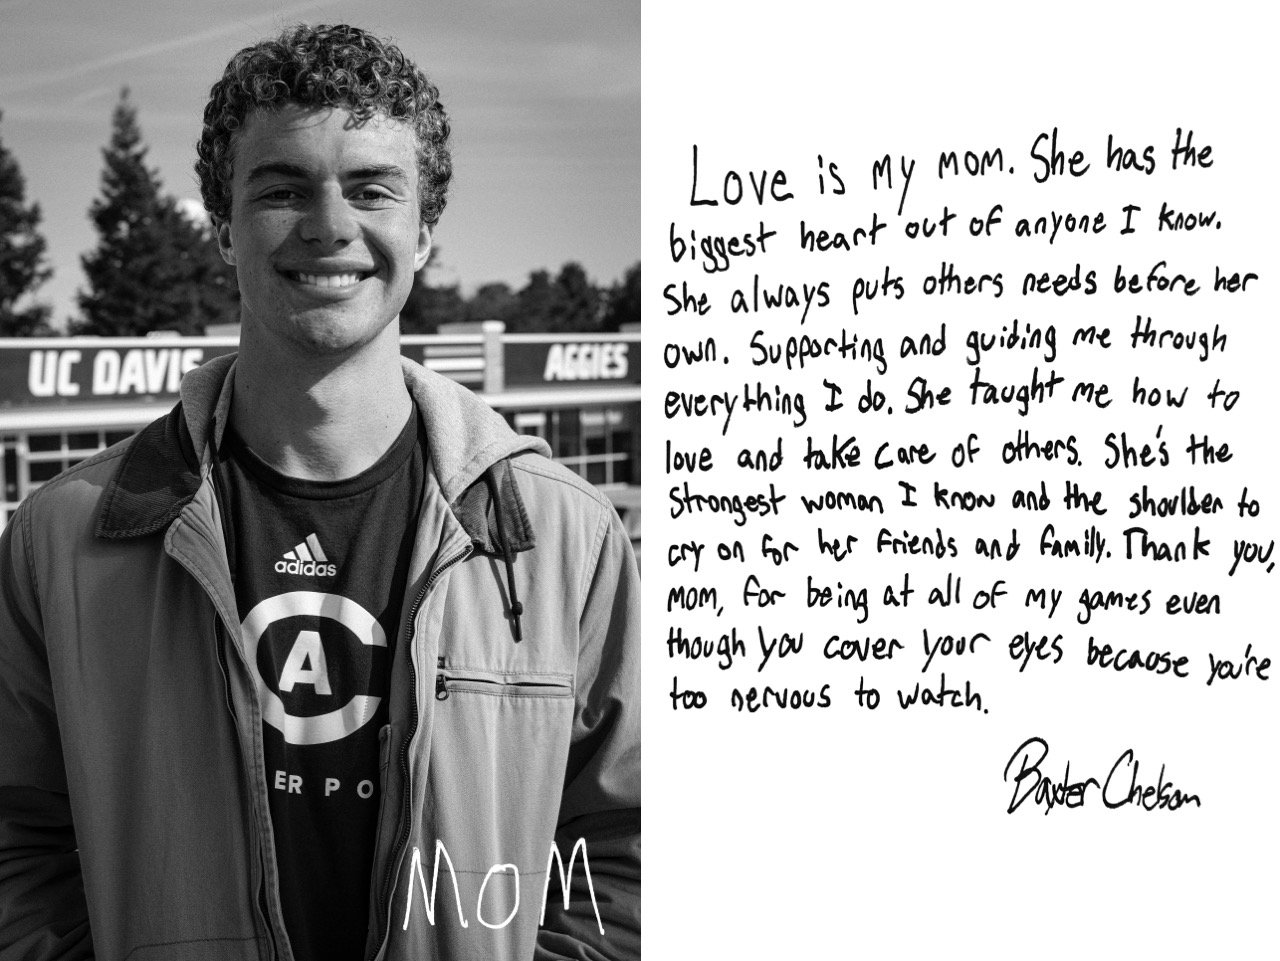 UC DAVIS
AGGIES
adidas
CA
ER PO
MOM
Love is my mom. She has the
biggest heart out of anyone I know.
She always puts others needs before her
own. Supporting and guiding me through
everything I do. She taught me how to
love and take care of others. She's the
strongest woman I know and the shoulder to
cry on for her friends and family. Thank you,
mom, for being at all of my games even
though you cover your eyes because you're
too nervous to watch.
Baxter Chelsom